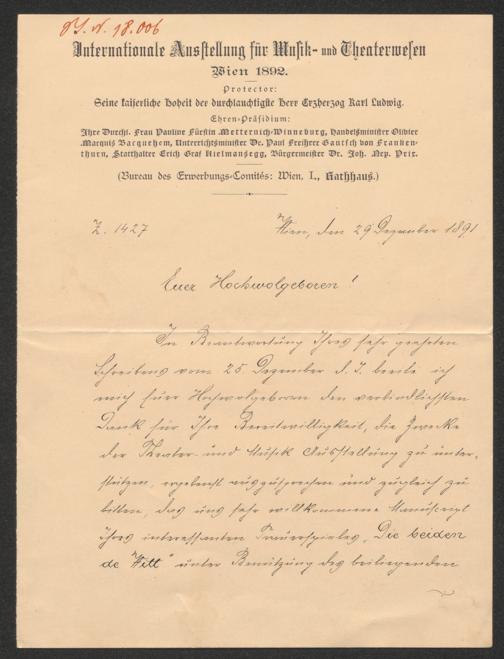 J. N. 78.006
Internationale Ausstellung für Musik- und Theaterwesen
Wien 1892.
Protector:
Seine kaiserliche Hoheit der durchlauchtigste Herr Erzherzog Karl Ludwig.
Ehren-Präsidium:
Ihre Durchl. Frau Pauline Fürstin Metternich-Winneburg, Handelsminister Olivier
Marquis Bacquehem, Unterrichtsminister Dr. Paul Freiherr Gautsch von Franken-
thurn, Statthalter Erich Graf Kielmansegg, Bürgermeister Dr. Joh. Nep. Prix.
(Bureau des Erwerbungs-Comités: Wien, I., Rathhaus.)
Z. 1427
Wien, den 29 Dezember 1891
Euer Hochwolgeboren!
In Beantwortung Ihres sehr geehrten
Schreibens vom 25 Dezember d. J. beeile ich
mich Euer Hochwolgeboren den verbindlichsten
Dank für Ihre Bereitwilligkeit, die Zwecke
der Theater- und Musik Ausstellung zu unter-
stützen, ergebenst auszusprechen und zugleich zu
bitten, das uns sehr willkommene Manuscript
Ihres interessanten Trauerspieles, „Die beiden
de Witt" unter Benützung des beiliegenden